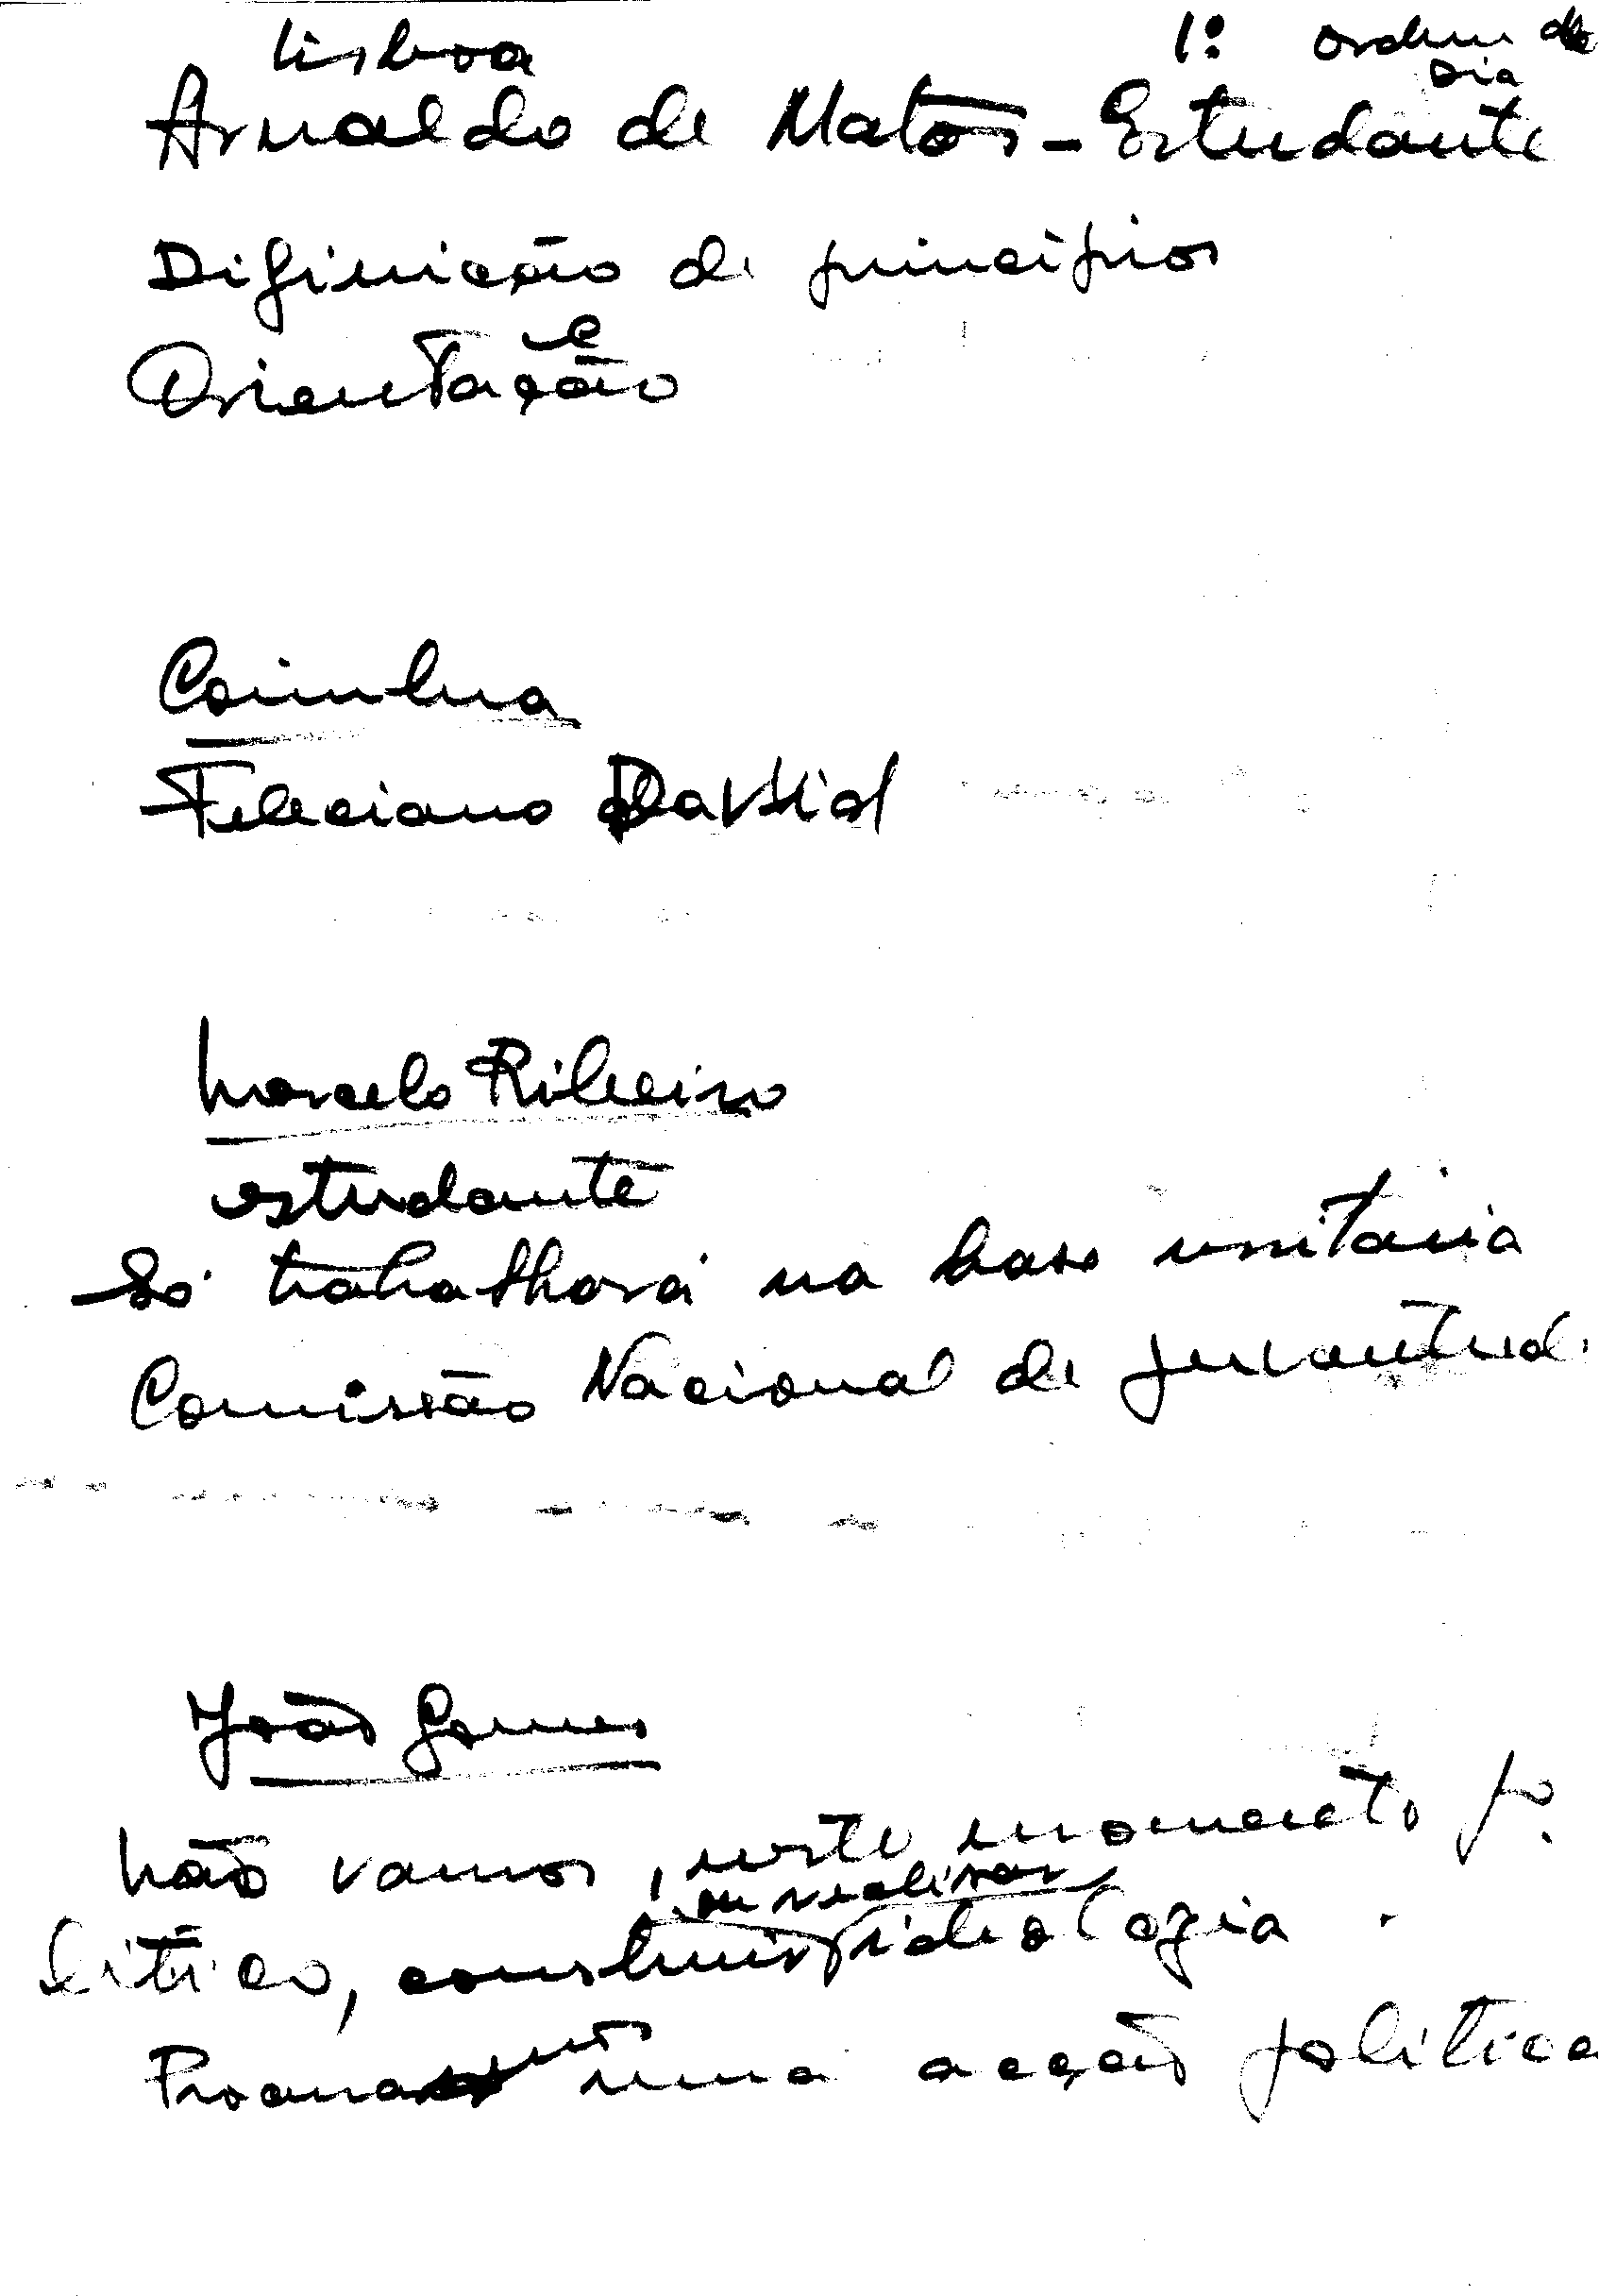 Lisboa
1º Ordem do
Dia
Arnaldo de Matos - Estudante
Difinição de principios
e
Orientação
Coimbra
Feleciano David
Marcelo Ribeiro
estudante
Só trabalhará na base unitária
Comissão Nacional de juventude
João Gomes
Não vamos, neste momento po-
ou realizar
litico, construir ideologia.
Procura uma acção politica